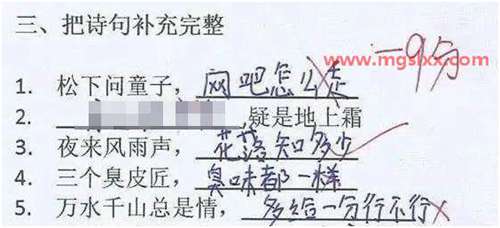 三、把诗句补充完整
-9分
www.mgslxx.com
1. 松下问童子，网吧怎么走
2. ,疑是地上霜
3. 夜来风雨声，花落知多少
4. 三个臭皮匠，臭味都一样
5. 万水千山总是情，多给一分行不行